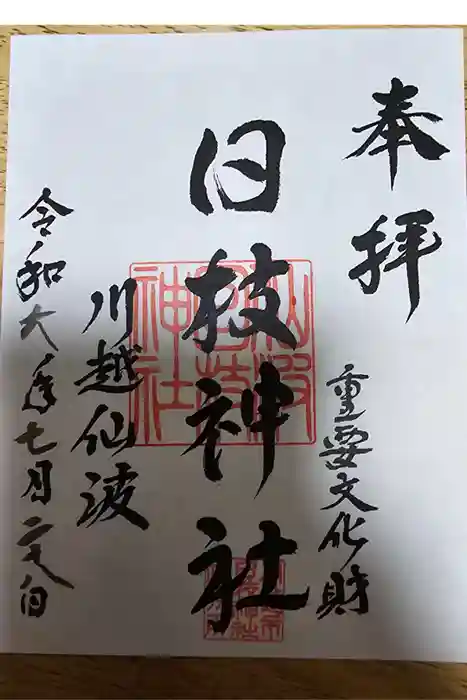 奉拝
重要文化財
日枝神社
仙波
日枝
神社
川越仙波
令和六年七月